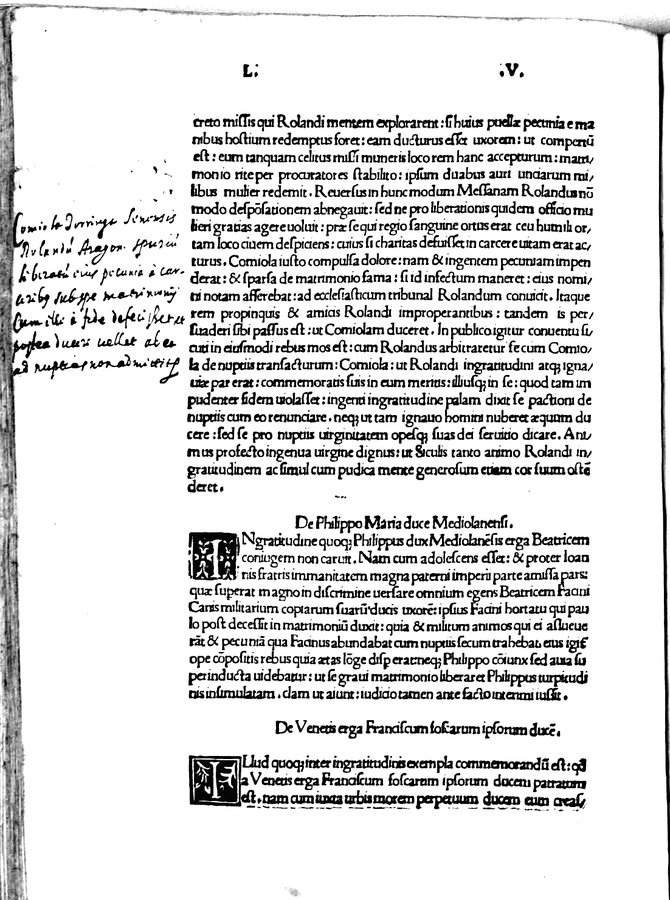 L.
.V.
creto missis qui Rolandi mentem explorarent: si huius puellæ pecunia e ma
nibus hostium redemptus foret: eam ducturus esset uxorem: ut compertũ
est: eum tanquam celitus missi muneris loco rem hanc accepturum: matri/
monio rite per procuratores stabilito: ipsum duabus auri unciarum mi/
libus mulier redemit. Reuersus in hunc modum Messanam Rolandus nõ
modo desponsationem abnegauit: sed ne pro liberationis quidem officio mu
lieri gratias agere uoluit: præ se qui regio sanguine ortus erat ceu humili or/
tam loco ciuem despiciens: cuius si charitas defuisset in carcere uitam erat ac/
turus. Comiola iusto compulsa dolore: nam & ingentem pecuniam impen
derat: & sparsa de matrimonio fama: si id infectum maneret: eius nomi/
ni notam afferebat: ad ecclesiasticum tribunal Rolandum conuicit. Itaque
rem propinquis & amicis Rolandi improperantibus: tandem is per/
suaderi sibi passus est: ut Comiolam duceret. In publico igitur conuentu si
cuti in eiusmodi rebus mos est: cum Rolandus arbitraretur se cum Comio/
la de nuptiis transacturum: Comiola: ut Rolandi ingratitudini atq; igna/
uiæ par erat: commemoratis suis in eum meritis: illiusq; in se: quod tam im
pudenter fidem uiolasset: ingenti ingratitudine palam dixit se pactioni de
nuptiis cum eo renunciare. neq; ut tam ignauo homini nuberet æquum du
cere: sed se pro nuptiis uirginitatem opesq; suas dei seruitio dicare. Ani/
mus profecto ingenua uirgine dignus: ut Siculis tanto animo Rolandi in/
gratitudinem ac simul cum pudica mente generosum etiam cor suum ostẽ
deret.
De Philippo Maria duce Mediolanensi.
INgratitudine quoq; Philippus dux Mediolanẽsis erga Beatricem
coniugem non caruit. Nam cum adolescens esset: & propter Ioan
nis fratris immanitatem magna paterni imperii parte amissa pars:
quæ superat magno in discrimine uersare omnium egens Beatricem Facini
Canis militarium copiarum suarũ ducis uxorẽ: ipsius Facini hortatu qui pau
lo post decessit in matrimoniũ duxit: quia & militum animos qui ei assueue
rãt & pecuniã qua Facinus abundabat cum nuptiis secum trahebat. eius igit̃
ope cõpositis rebus quia ætas lõge disp erat neq; Philippo cõiunx sed auia su
perinducta uidebatur: ut se graui matrimonio liberaret Philippus turpitudi
nis insimulatam. clam ut aiunt: iudicio tamen ante facto interimi iussit.
De Venetis erga Franciscum foscarum ipsorum ducẽ.
ILlud quoq; inter ingratitudinis exempla commemorandũ est: qd̃
a Venetis erga Franciscum foscarum ipsorum ducem patratum
est. nam cum iuxta urbis morem perpetuum ducem eum creas/
Senensis
Rolandũ Aragon. spuriũ
liberatũ eius pecunia à car-
matrimonij
nollet
ad nuptias non admittit